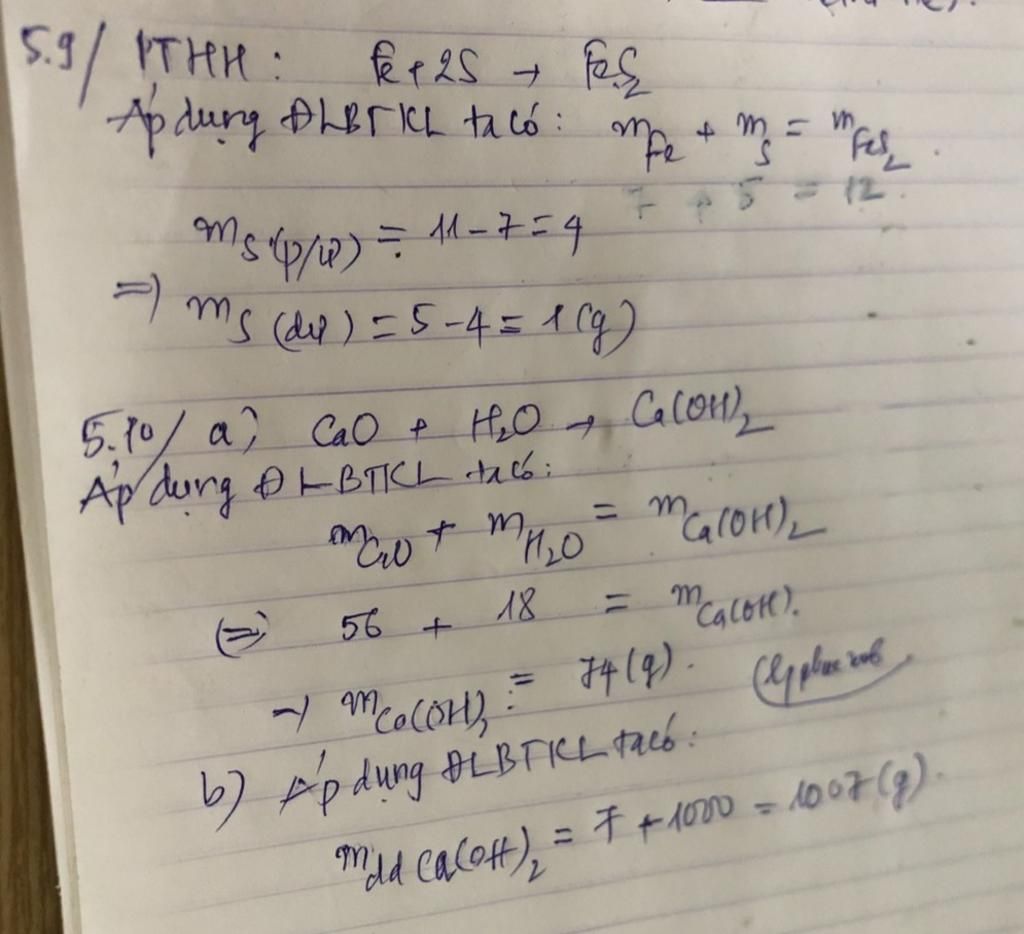 5.9/ PTHH: Fe + 2S → FeS₂
Áp dụng ĐLBTKL ta có: mFe + mS = mFeS₂.
7 + 5 = 12.
mS (p/ư) = 11 - 7 = 4
=) mS (dư) = 5 - 4 = 1 (g)
5.10/ a) CaO + H₂O → Ca(OH)₂
Áp dụng ĐLBTKL ta có:
mCaO + mH₂O = mCa(OH)₂
(=) 56 + 18 = mCa(OH).
→ mCa(OH)₂ = 74 (g).
b) Áp dụng ĐLBTKL ta có:
mdd Ca(OH)₂ = 7 + 1000 = 1007 (g).